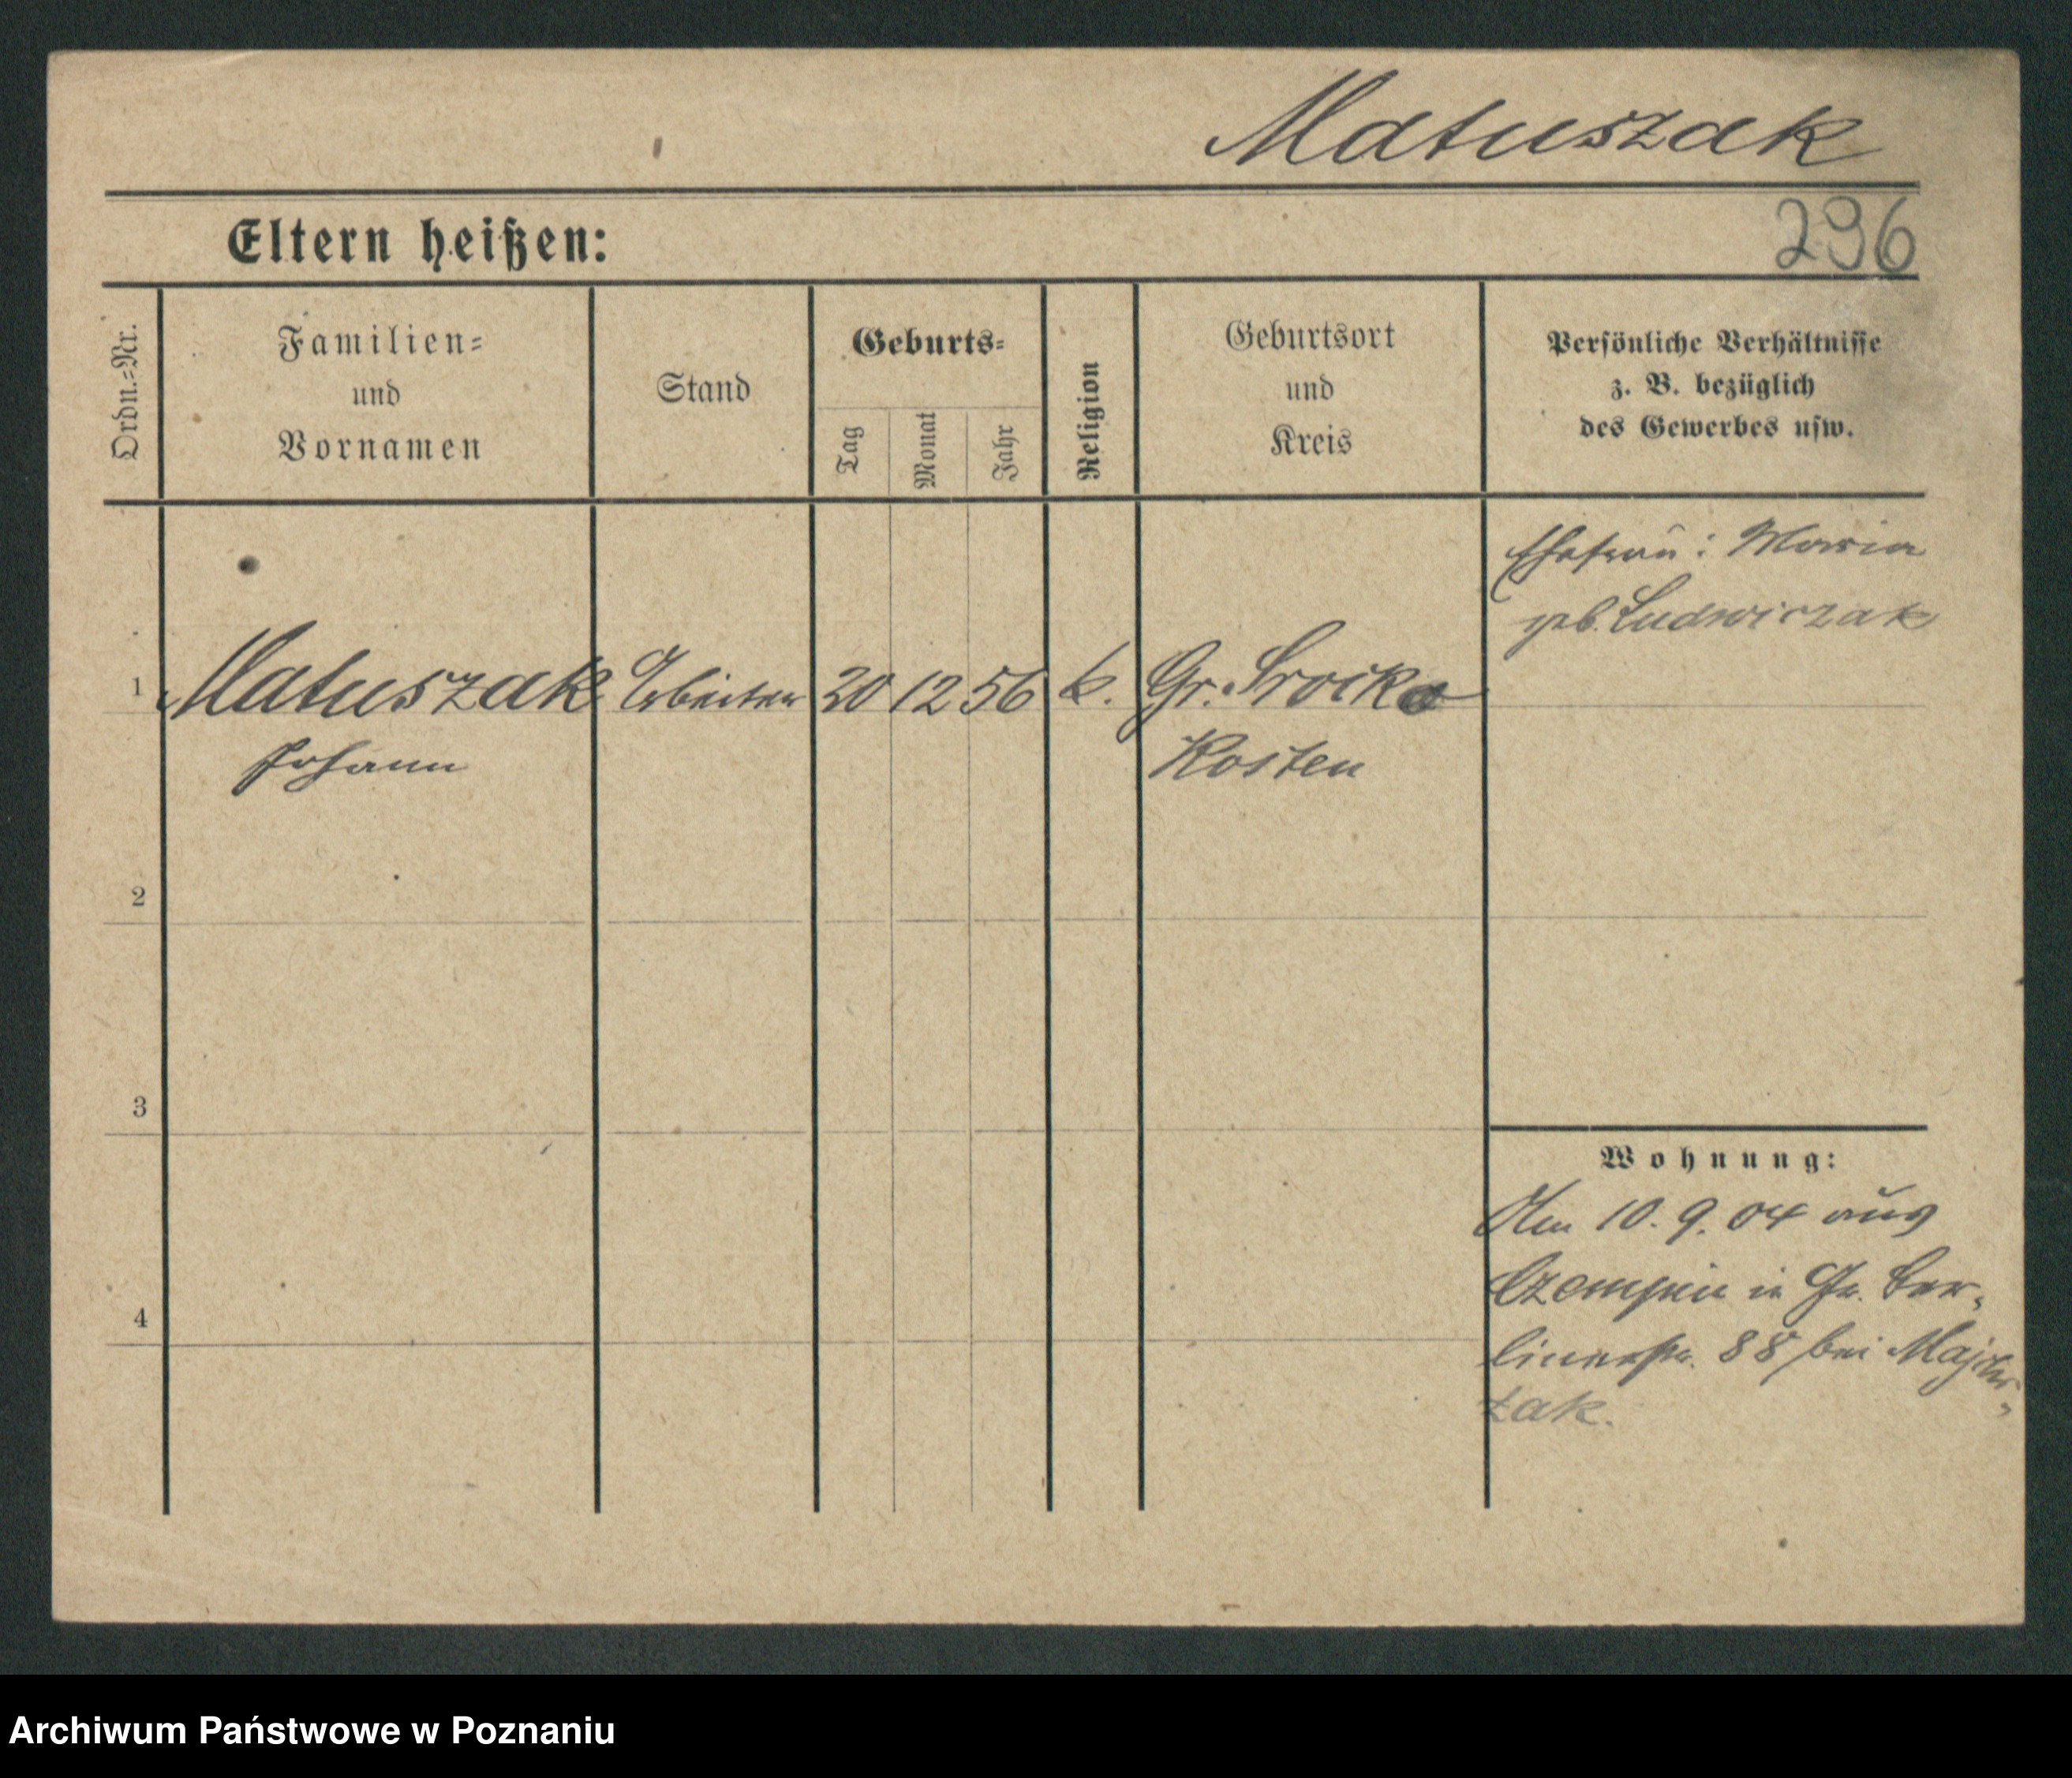 Matuszak
Eltern heißen:
296
Ordn.=Nr.
Familien=
und
Vornamen
Stand
Geburts=
Tag
Monat
Jahr
Religion
Geburtsort
und
Kreis
Persönliche Verhältnisse
z. B. bezüglich
des Gewerbes usw.
Ehefrau: Maria
geb. Ludwiczak
1 Matuszak Arbeiter 20 12 56 k. Gr. Srocko
Johann Kosten
2
3
Wohnung:
Am 10. 9. 04 aus
Czempin in Gr. Ber-
4
linerstr. 88 bei
zak.
Archiwum Państwowe w Poznaniu